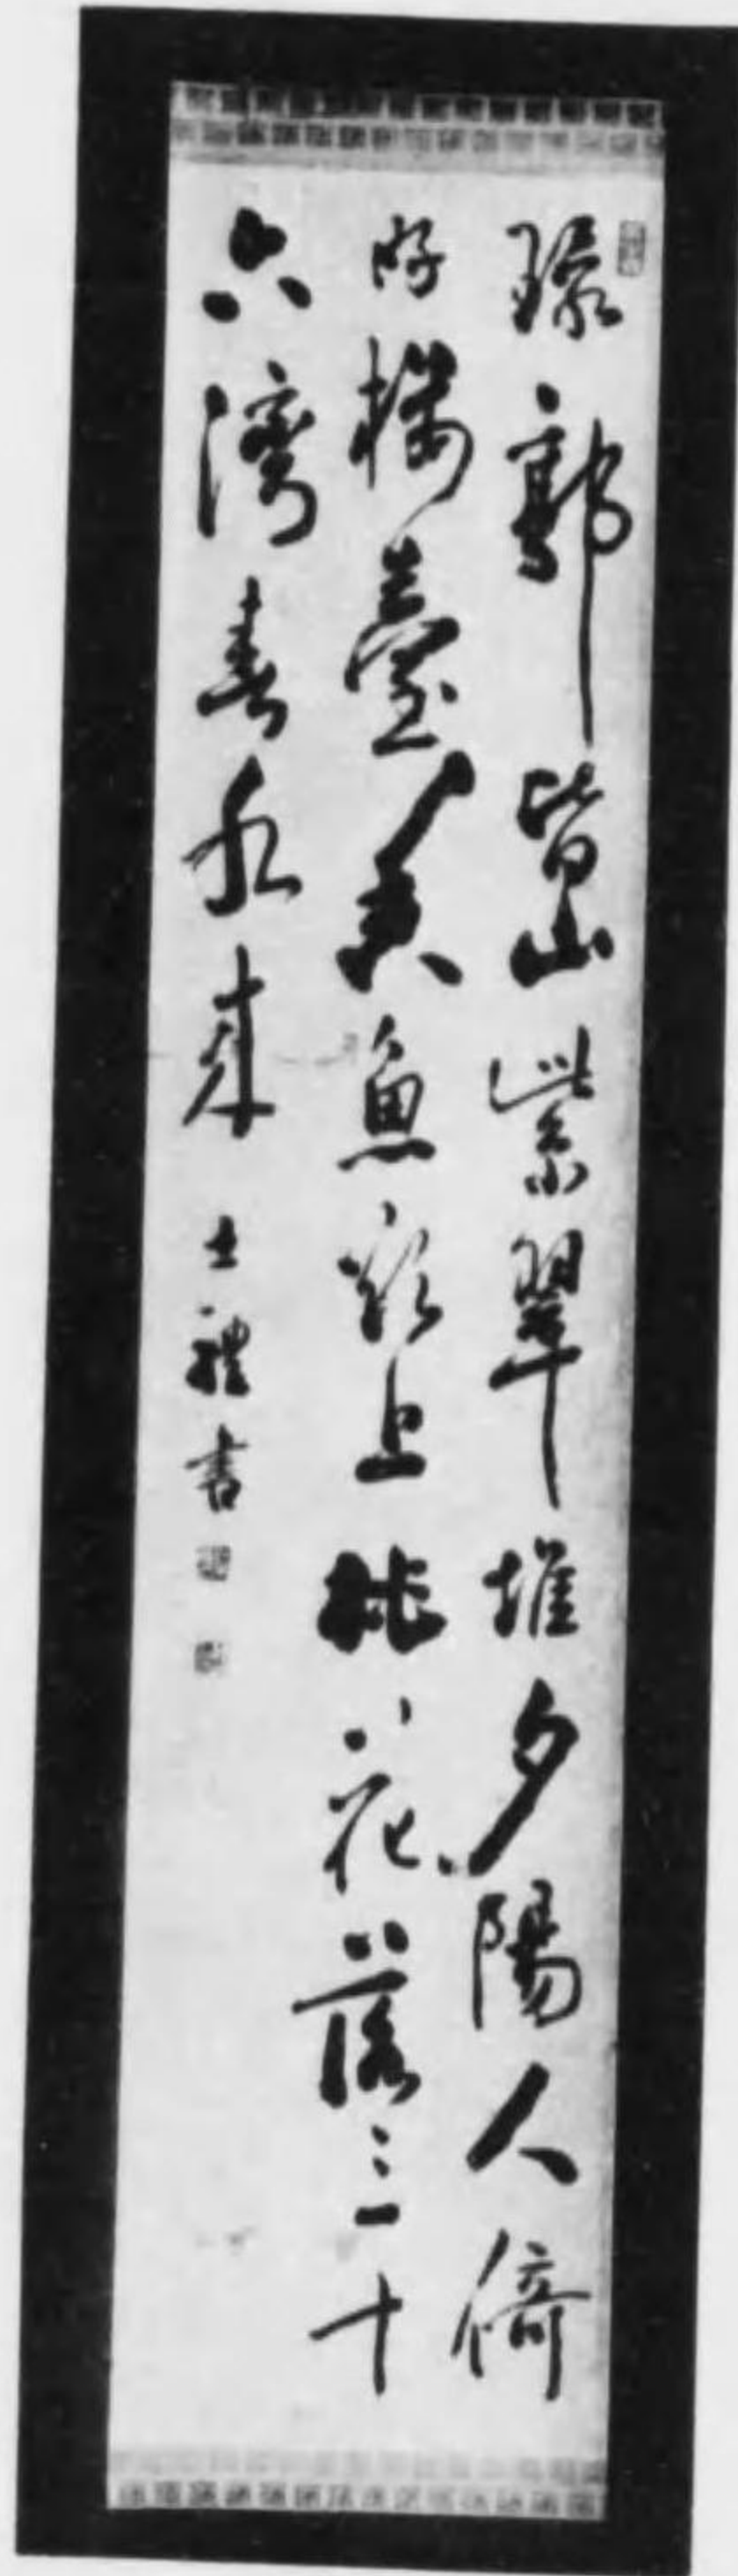 環郭皆山紫翠堆夕陽人倚
好樓臺香魚欲上桃花落三十
六灣春水來 士禮書